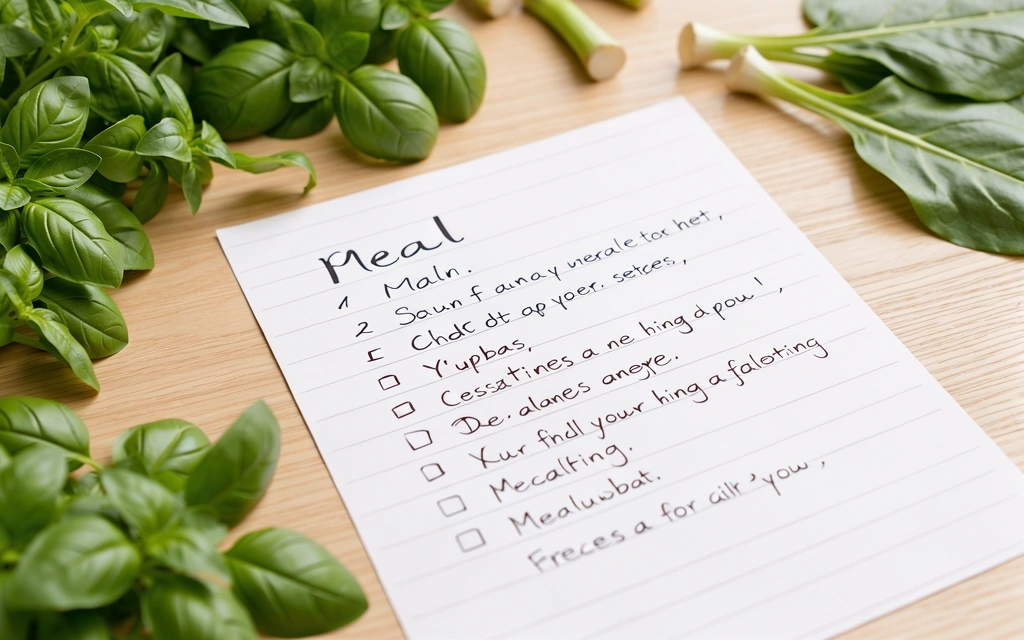 Meal
1 Maln.
2 Saun f amay verale tor het,
Chdc dt ap yoer. setces,
Y'upbas,
Cessatines a ne hing d pou!,
De. alanes aneyre.
Xur fhdl your hing a faloting
Mecalting.
Mealuwbat.
Freces a for cilt 'yow,